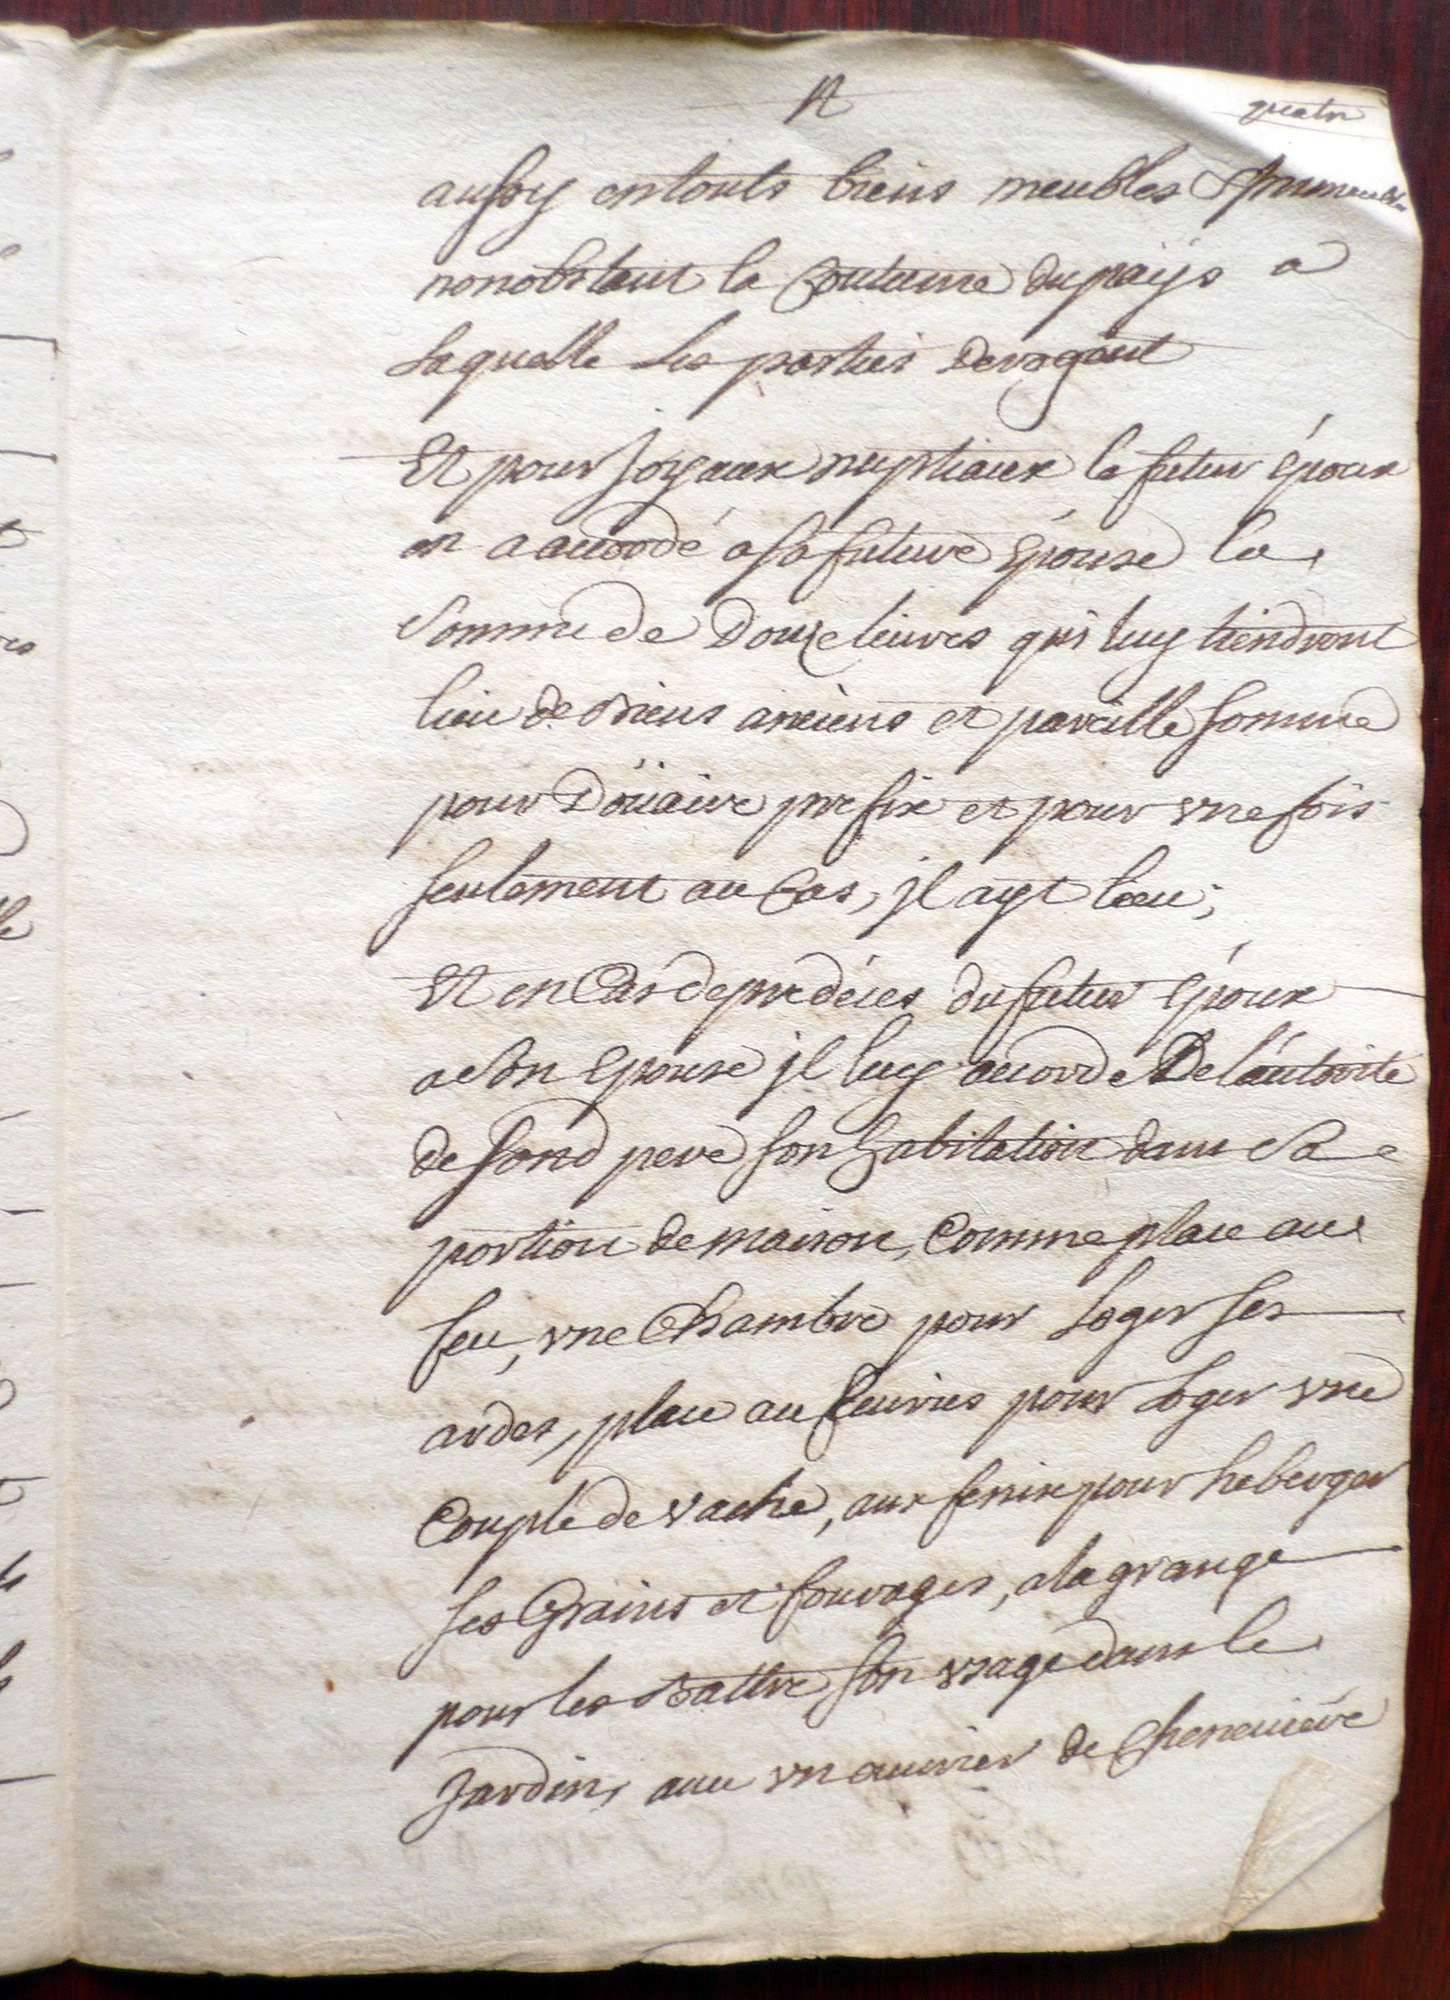 quatre
aussy en touts biens meubles & Immeubles
nonobstant la Coutume du païs a
laquelle les parties derogent
Et pour joyaux nuptiaux le futur époux
en a accordé a sa future Epouse la
somme de Douze livres qui luy tiendront
lieu de biens anciens et pareille somme
pour Doüaire prefix et pour vne fois
seulement au Cas, jl ayt lieu;
Et en Cas de predéces du futur époux
a son Epouse jl luy accorde De l'autorité
de sond pere son habitation dans sa
portion de maison, Comme place au
feu, vne Chambre pour Loger ses
ardes, place au Ecuries pour Loger vne
Couple de vache, aux fenix pour heberger
ses Grains et fourages, a la grange
pour les Battre son vsage dans le
Jardin, avec vn ouvrier de Cheneuiere